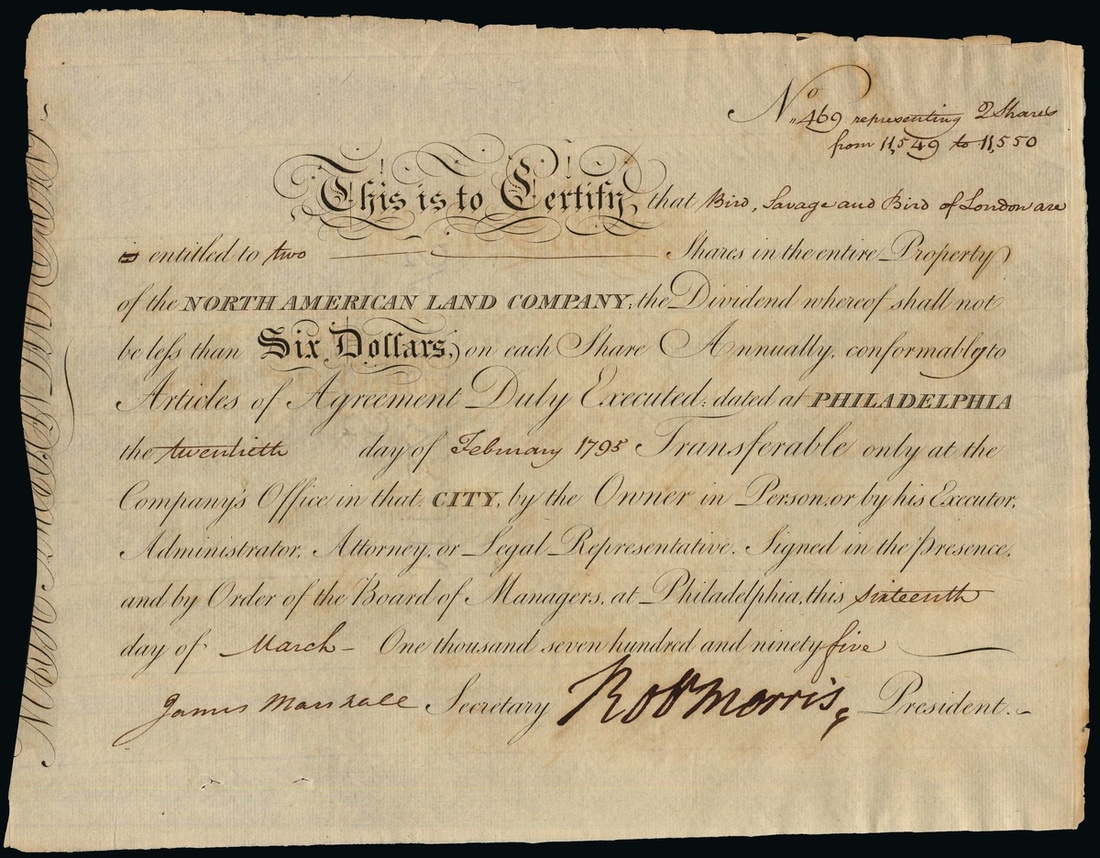 No. 469 representing 2 Shares
from 11,549 to 11,550
This is to Certify, that Bird, Savage and Bird of London are
is entitled to two Shares in the entire Property
of the NORTH AMERICAN LAND COMPANY, the Dividend whereof shall not
be leſs than Six Dollars, on each Share Annually, conformably to
Articles of Agreement Duly Executed; dated at PHILADELPHIA
the twentieth day of February 1795 Transferable only at the
Company's Office in that CITY, by the Owner in Person, or by his Executor,
Administrator, Attorney, or Legal Representative. Signed in the presence,
and by Order of the Board of Managers, at Philadelphia, this sixteenth
day of March - One thousand seven hundred and ninety five
James Marshall Secretary Robt Morris, President.